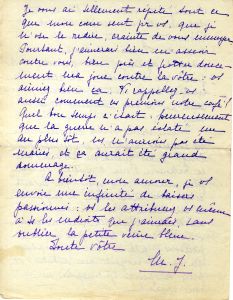 Je vous ai tellement répété tout ce
que mon cœur sent pr vs, que je
n'ose le redire, crainte de vous ennuyer
Pourtant, j'aimerais bien m'asseoir
contre vous, bien près et frotter douce-
ment ma joue contre la vôtre : vs
aimez bien ça. Vs rappelez-vs
aussi comment vs prenions notre café !
Quel bon temps c'était. Heureusement
que la guerre n'a pas éclaté un
an plus tôt, ns n'aurions pas été
mariés, et ça aurait été grand
dommage.
A bientôt mon amour, je vs
envoie une infinité de baisers
passionnés : vs les attribuerez vs même
à ts les endroits que j'aimais, sans
oublier la petite veine bleue.
Toute vôtre
M. J.